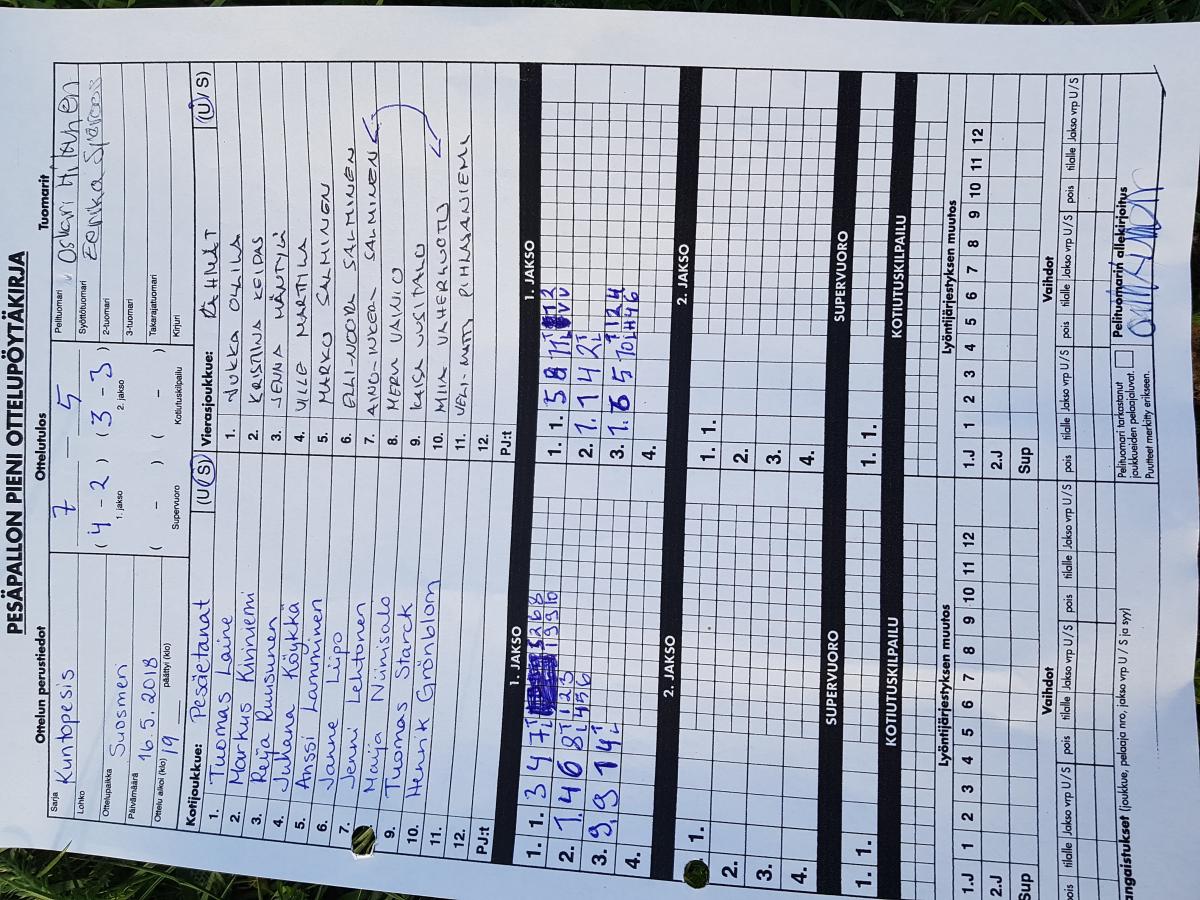 PESÄPALLON PIENI OTTELUPÖYTÄKIRJA
Ottelun perustiedot
Ottelutulos
Tuomarit
Sarja Kuntopesis
Lohko
Ottelupaikka Suosmeri
Päivämäärä 16.5.2018
Ottelu alkoi (klo) 19 päättyi (klo)
7 — 5
( 4 - 2 ) ( 3 - 3 )
1. jakso 2. jakso
( - ) ( - )
Supervuoro Kotiutuskilpailu
Pelituomari Oskari
Syöttötuomari Eerika
2-tuomari
3-tuomari
Takarajatuomari
Kirjuri
Kotijoukkue: Pesäetanat (U / S)
1. Tuomas Laine
2. Markus Kiviniemi
3. Reija Ruusunen
4. Juhana Köykkä
5. Anssi Lamminen
6. Janne Liipo
7. Jenni Lehtonen
8. Maija Niinisalo
9. Tuomas Starck
10. Henrik Grönblom
11.
12.
PJ:t
Vierasjoukkue: (U / S)
1. JUKKA OLLILA
2. KRISTIINA KEIDAS
3. JENNA MÄNTYLÄ
4. VILLE MARTTILA
5. MARKO SALMINEN
6. ELLI-NOORA SALMINEN
7. AINO-INKERI SALMINEN
8. MERVI VAINIO
9. KAISA UUSITALO
10. MIIA VAHERKOTU
11. VELI-MATTI PIHLASANIEMI
12.
PJ:t
1. JAKSO
1. 1. 3 4 7
2. 7. 4 6 8
3. 9. 9 1 4
4.
2. JAKSO
1.
2.
3.
4.
SUPERVUORO
1. 1.
KOTIUTUSKILPAILU
Lyöntijärjestyksen muutos
1.J 1 2 3 4 5 6 7 8 9 10 11 12
2.J
Sup
Vaihdot
pois tilalle Jakso vrp U / S pois tilalle Jakso vrp U / S pois tilalle Jakso vrp U / S
1. JAKSO
1. 1.
2. 1. 1 4 2
3.
4.
2. JAKSO
1. 1.
2.
3.
4.
SUPERVUORO
1. 1.
KOTIUTUSKILPAILU
Lyöntijärjestyksen muutos
1.J 1 2 3 4 5 6 7 8 9 10 11 12
2.J
Sup
Vaihdot
pois tilalle Jakso vrp U / S pois tilalle Jakso vrp U / S pois tilalle Jakso vrp U / S
angaistukset (joukkue, pelaaja nro, jakso vrp U / S ja syy)
Pelituomari tarkastanut
joukkueiden pelaajaluvat.
Puutteet merkitty erikseen.
Pelituomarin allekirjoitus